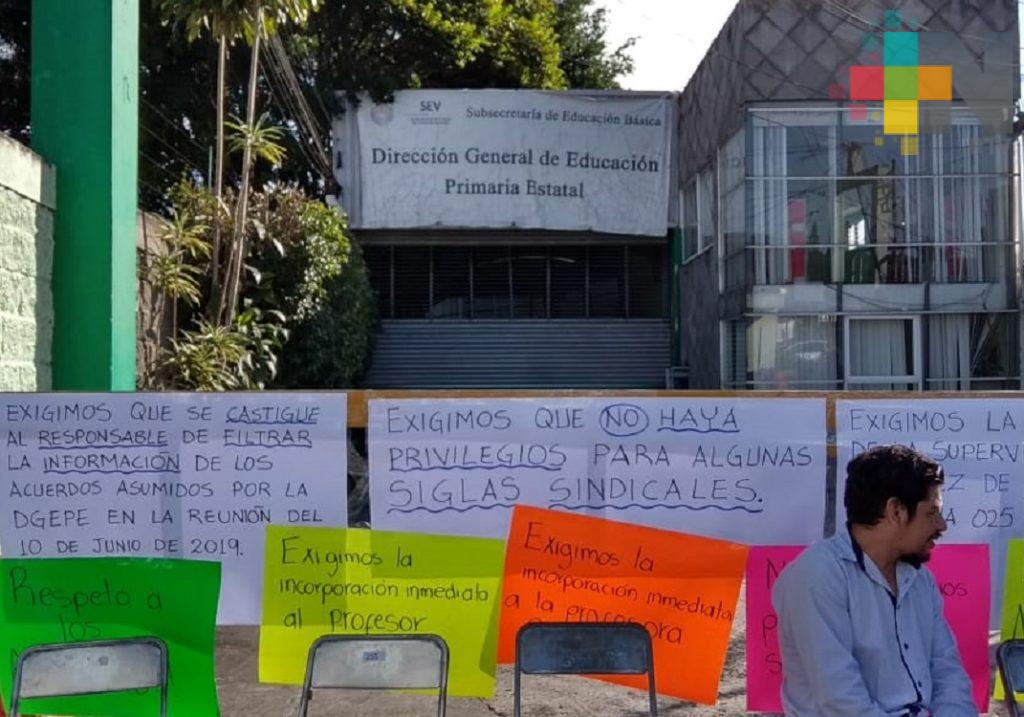 SEV
Subsecretaría de Educación Básica
Dirección General de Educación
Primaria Estatal
EXIGIMOS QUE SE CASTIGUE
AL RESPONSABLE DE FILTRAR
LA INFORMACIÓN DE LOS
ACUERDOS ASUMIDOS POR LA
DGEPE EN LA REUNIÓN DEL
10 DE JUNIO DE 2019.
EXIGIMOS QUE NO HAYA
PRIVILEGIOS PARA ALGUNAS
SIGLAS SINDICALES.
EXIGIMOS LA
SUPERVI
Z DE
A 025
Respeto a
los
Exigimos la
incorporación inmediata
al Profesor
Exigimos la
incorporación inmediata
a la profesora